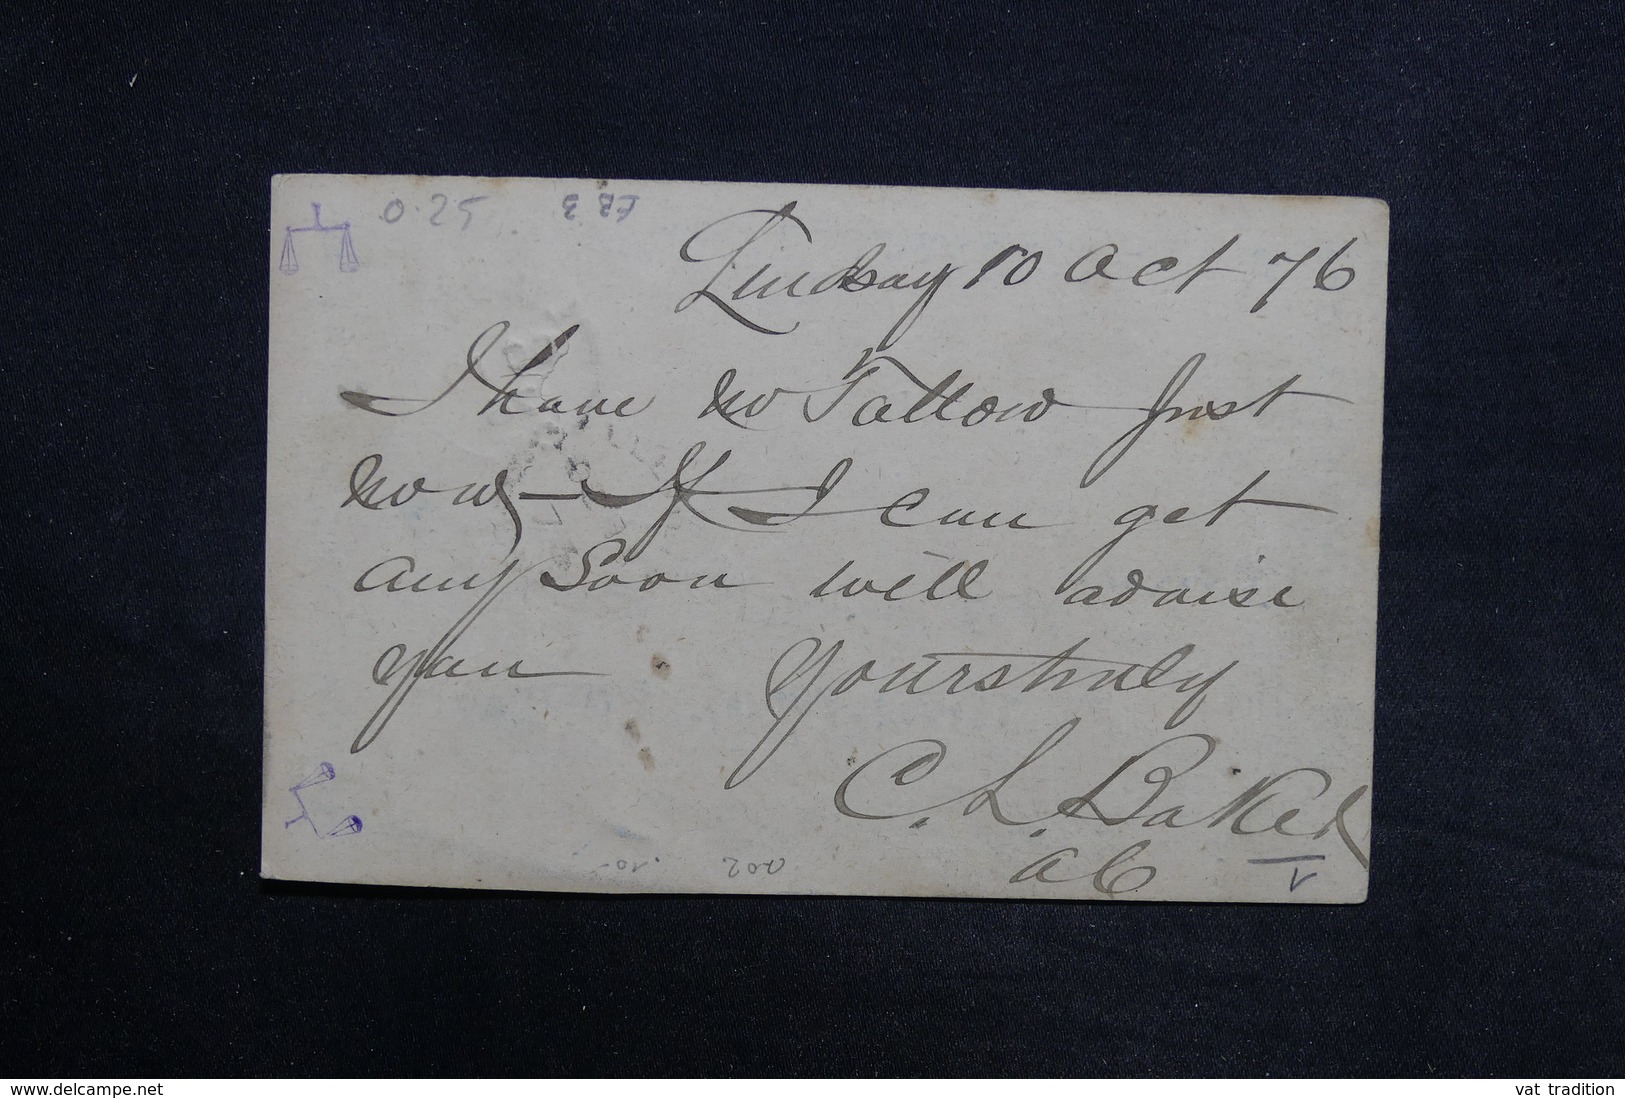 0.25
Lindsay 10 Oct 76
I have no Tallow just
now — If I can get
any Soon will advise
you Yours truly
C. L. Baker
202 .10-
www.delcampe.net vat tradition